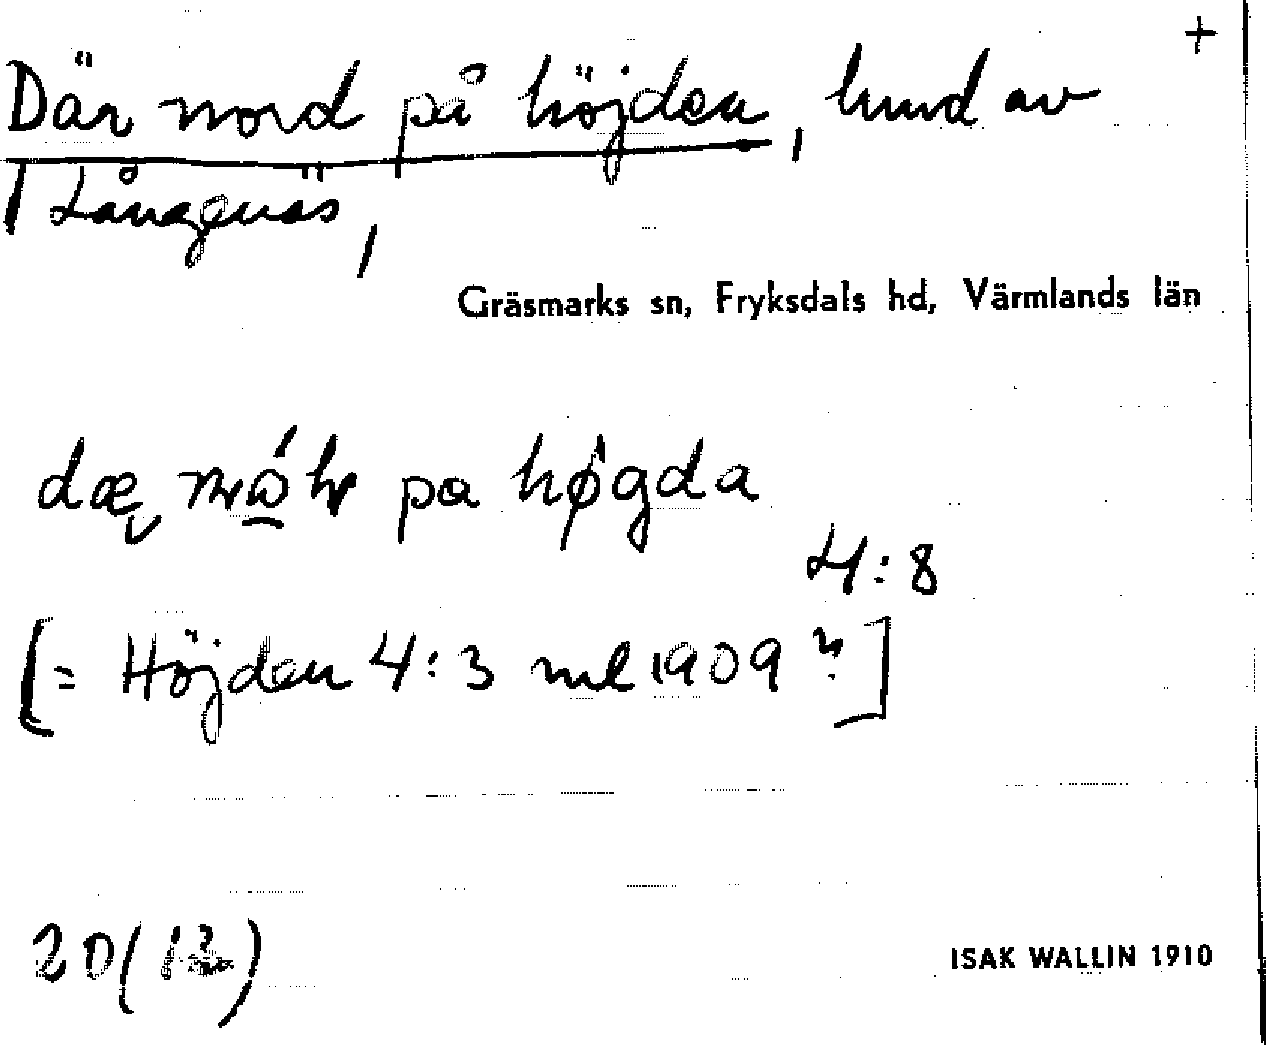 +
Där nord på höjden, hmd av
Långenäs,
Gräsmarks sn, Fryksdals hd, Värmlands län
pa høgda
4:8
[= Höjden 4:3 ml 1909 ?]
20(12)
ISAK WALLIN 1910